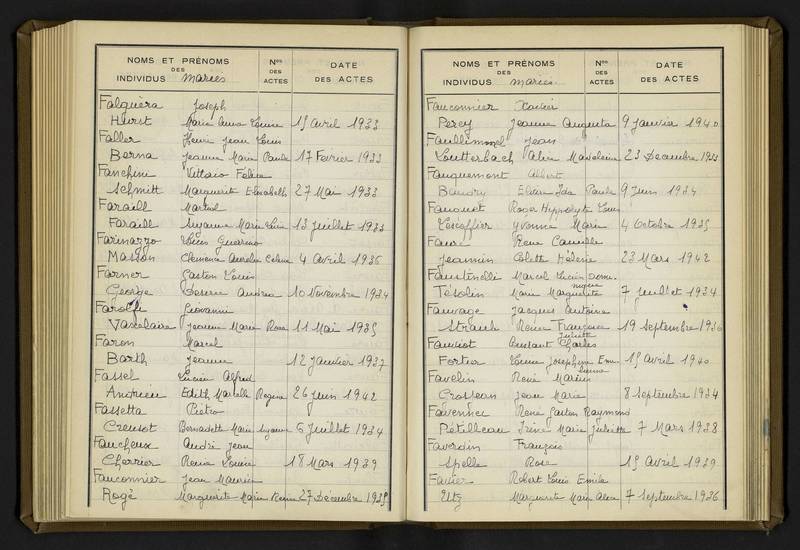 NOMS ET PRÉNOMS
DES
INDIVIDUS mariés
Nos
DES
ACTES
DATE
DES ACTES
Falguèra Joseph
Hurst Marie Anna Louise 15 Avril 1933
Faller Henri Jean Louis
Berna Jeanne Marie Paule 17 Février 1933
Fanchini Vittorio Felice
Schmitt Marguerite Elisabeth 27 Mai 1933
Faraill Martial
Faraill Suzanne Marie 13 Juillet 1933
Farinazzo Louis Guerrino
Masson Clémence Aurélie 4 Avril 1936
Farner Gaston Louis
George Désirée Andrea 10 Novembre 1934
Farolfi Giovanni
Vaxelaire Jeanne Marie Rose 11 Mai 1935
Faron Marcel
Barth Jeanne 12 Janvier 1937
Fassel Lucien Alfred
Andrieu Edith Marcelle Regina 26 Juin 1942
Fassetta Pietro
Creusot Bernadette Marie Suzanne 6 Juillet 1934
Faucheux André Jean
Cherrier Renée Louise 18 Mars 1939
Fauconnier Jean Maurice
Rogé Marguerite Marie Renée 27 Décembre 1935
NOMS ET PRÉNOMS
DES
INDIVIDUS mariés
Nos
DES
ACTES
DATE
DES ACTES
Fauconnier Xavier
Percy Jeanne Augusta 9 Janvier 1940
Faullimmel Jean
Loutterbach Alice Madeleine 23 Décembre
Fauquemont Albert
Baudry Ida Paule 9 Juin 1934
Fauquot Roger Hippolyte Louis
Lescoffier Yvonne Marie 4 Octobre 1935
Faure René Camille
Jeannin Colette Hélène 23 Mars 1942
Faustinelli Marcel Lucien
Tésolin Marie Marguerite 7 Juillet 1934
Fauvage Jacques Antoine
Straub Reine Françoise Juliette 19 Septembre 1936
Fauviot Constant Charles
Fortier Louise Joséphine 15 Avril 1940
Favelin René Marius
Crosjean Jeanne Marie 8 Septembre 1934
Favennec René Gaston Raymond
Pétilleau Irène Marie Juliette 7 Mars 1938
Faverdin François
Spelle Rose 15 Avril 1939
Favier Robert Louis Emile
Utz Marguerite Marie Alice 7 Septembre 1936